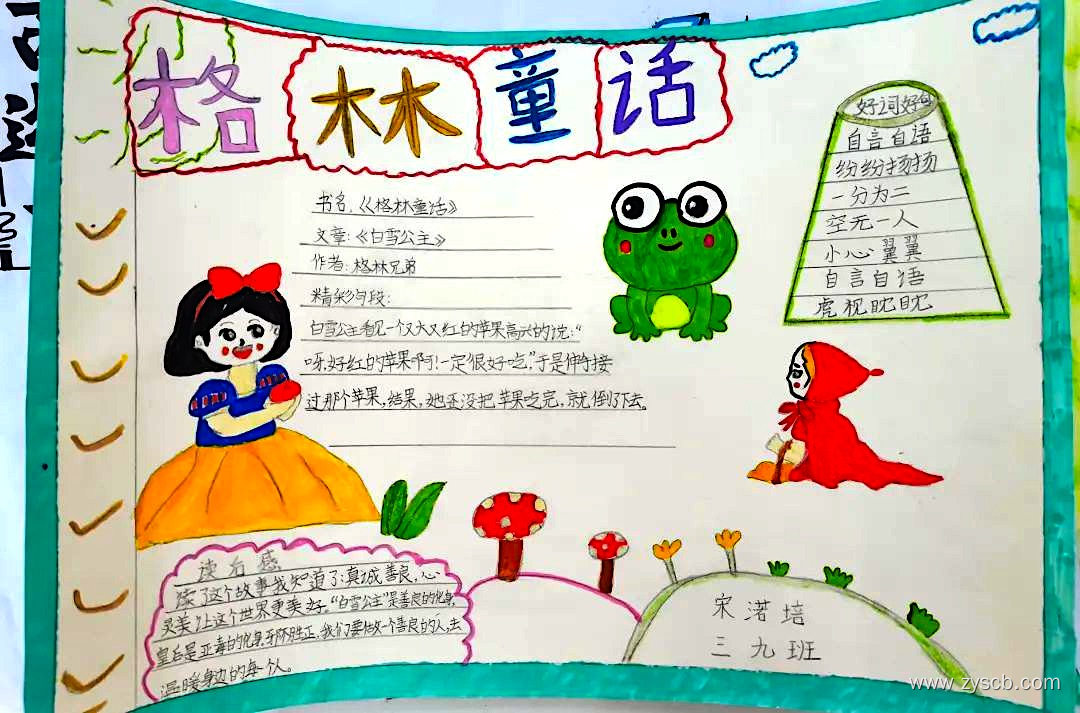 格林童话
书名:《格林童话》
文章:《白雪公主》
作者:格林兄弟
精彩句段:
白雪公主看见一个又大又红的苹果高兴的说:“
呀,好红的苹果啊!一定很好吃,”于是伸手接
过那个苹果,结果,她还没把苹果吃完,就倒了下去。
好词好句
自言自语
纷纷扬扬
一分为二
空无一人
小心翼翼
自言自语
虎视眈眈
读后感
读了这个故事我知道了:真诚善良,心
灵美,让这个世界更美好。“白雪公主”是善良的化身,
皇后是恶毒的化身,邪不胜正,我们要做一个善良的人,去
温暖身边的每个人。
宋渃培
三九班
www.zyscb.com